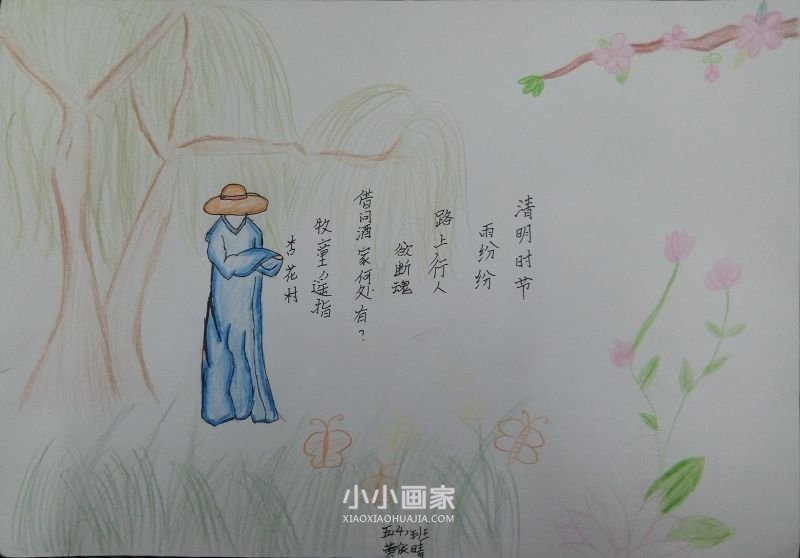 清明时节
雨纷纷
路上行人
欲断魂
借问酒家何处有？
牧童遥指
杏花村
小小画家
XIAOXIAOHUAJIA.COM
五4班